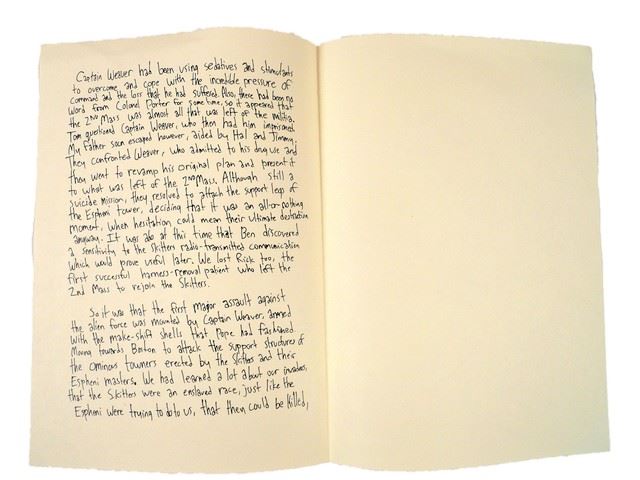 Captain Weaver had been using sedatives and stimulants
to overcome and cope with the incredible pressure of
command and the loss that he had suffered. Also, there had been no
word from Colonel Porter for some time, so it appeared that
the 2nd Mass was almost all that was left of the militia.
Tom questioned Captain Weaver, who then had him imprisoned.
My father soon escaped however, aided by Hal and Jimmy.
They confronted Weaver, who admitted to his drug use and
they went to revamp his original plan and present it
to what was left of the 2nd Mass. Although still a
suicide mission, they resolved to attach the support legs of
the Espheni tower, deciding that it was an all-or-nothing
moment, when hesitation could mean their ultimate destruction
anyway. It was also at this time that Ben discovered
a sensitivity to the Skitters radio-transmitted communication
which would prove useful later. We lost Rick too, the
first successful harness-removal patient who left the
2nd Mass to rejoin the Skitters.
So it was that the first major assault against
the alien force was mounted by Captain Weaver, armed
with the make-shift shells that Pope had fashioned.
Moving towards Boston to attack the support structures of
the ominous towners erected by the Skitters and their
Espheni masters. We had learned a lot about our invaders,
that the Skitters were an enslaved race, just like the
Espheni were trying to do to us, that then could be killed,